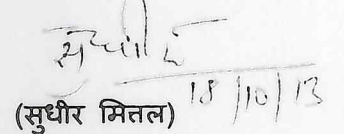 18/10/13
(सुधीर मित्तल)